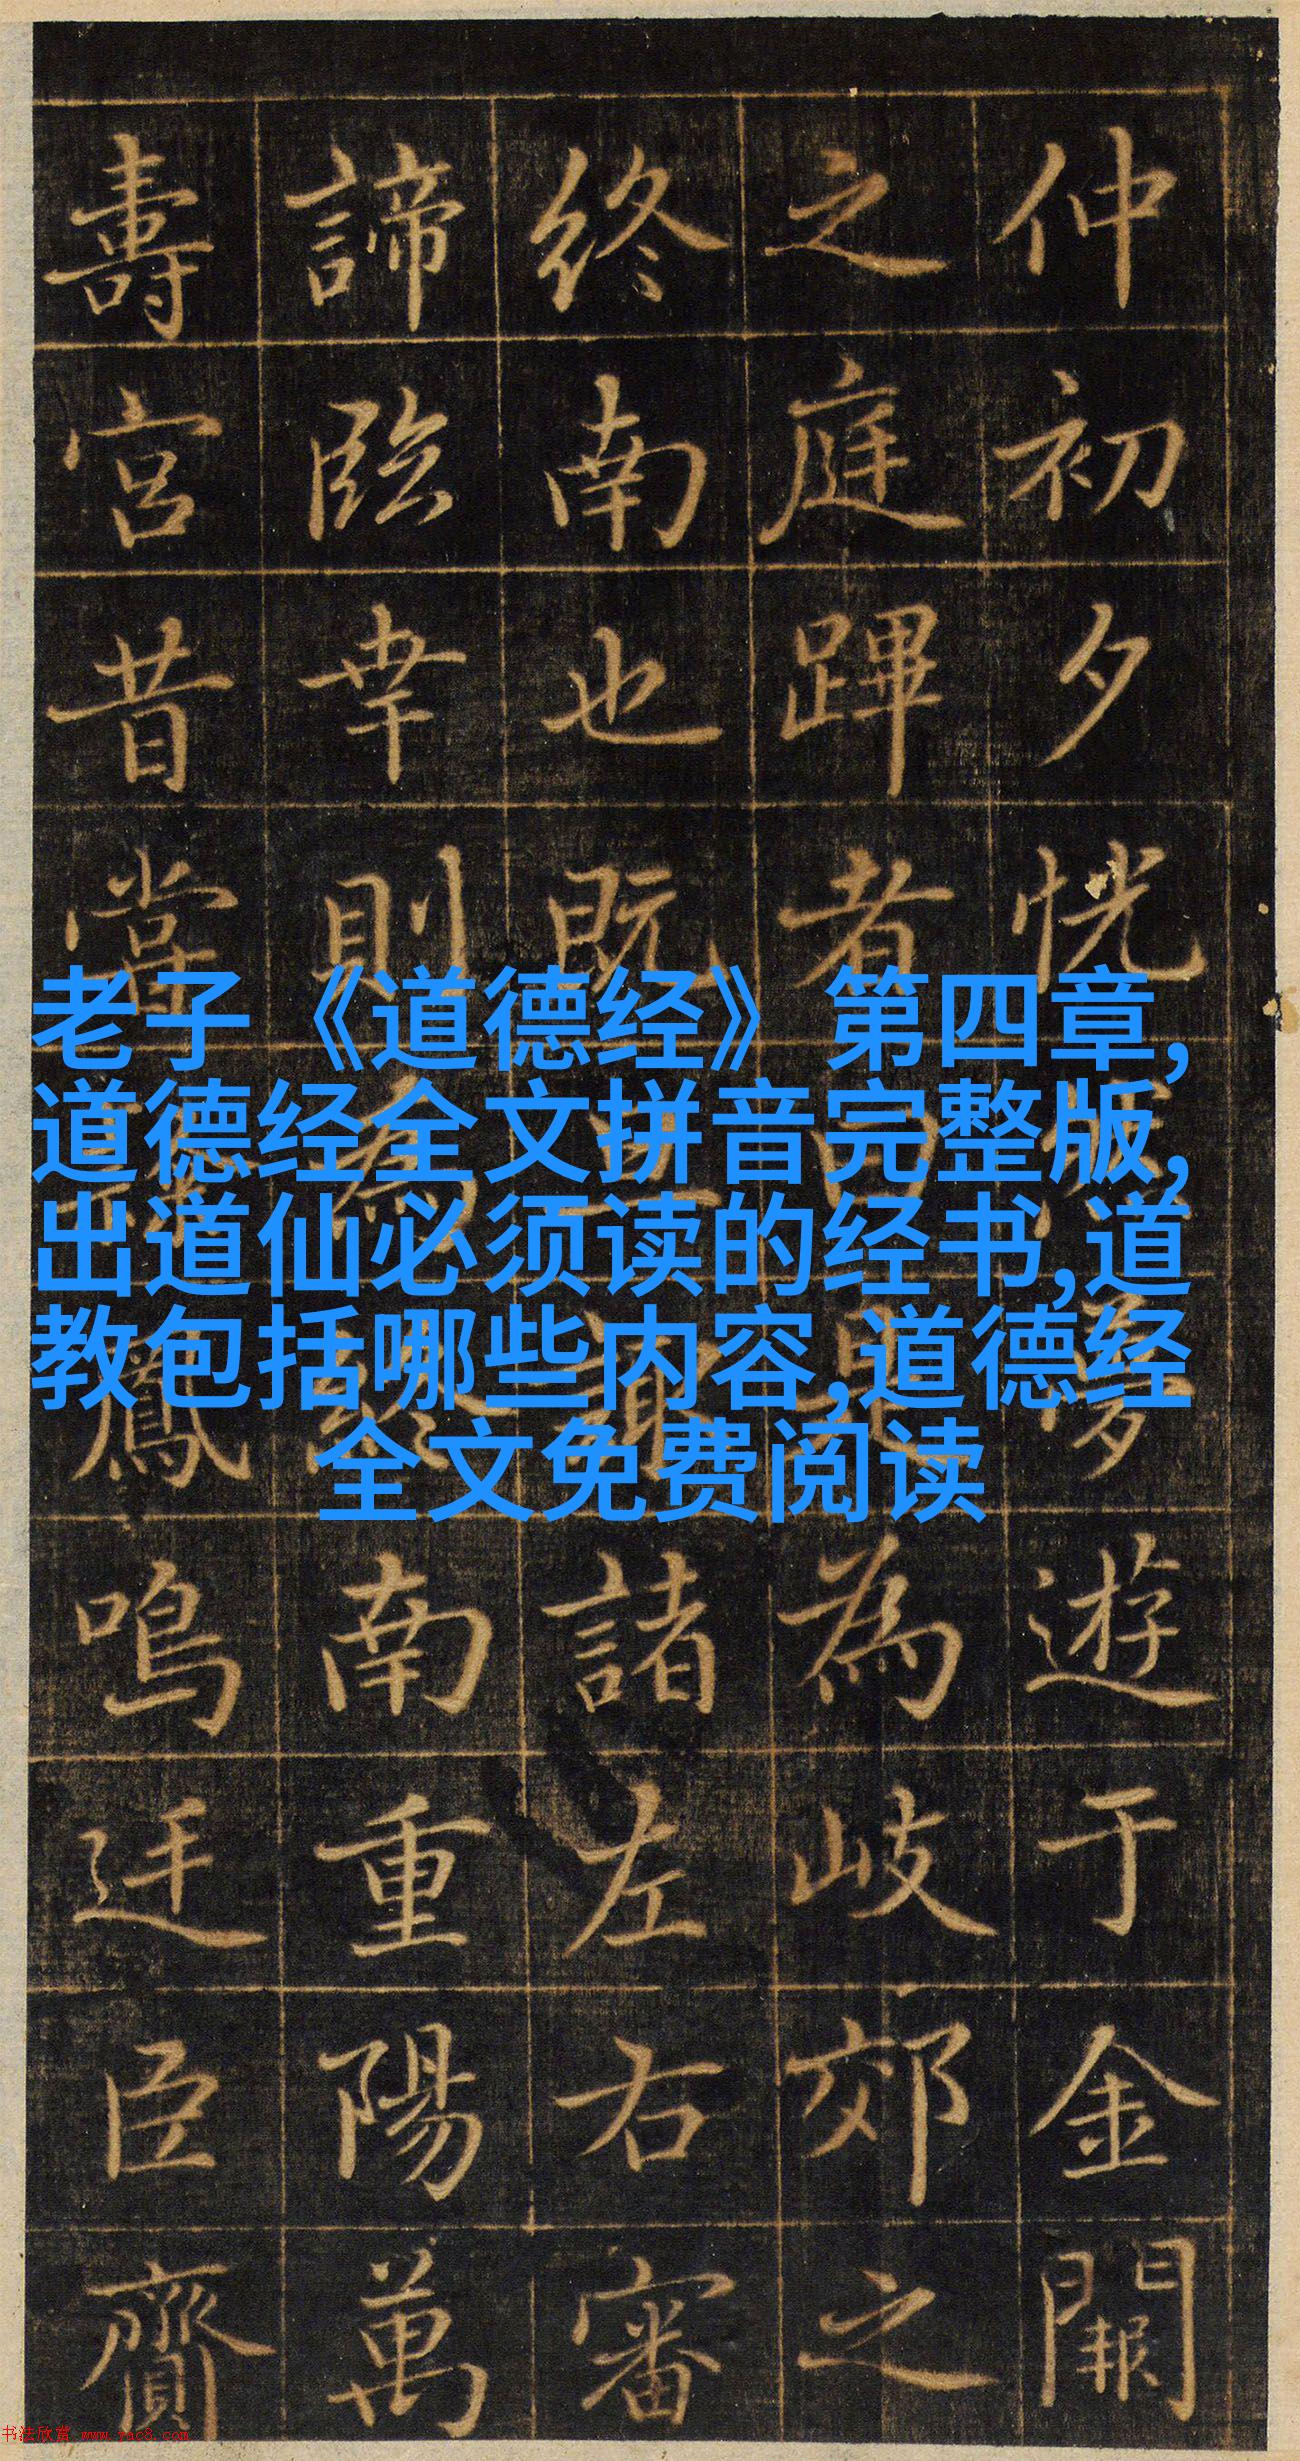 仲初夕恍夢遊于金闕
之庭蹕者曰是為岐郊之
終南也既至謂諸左右審
諦臨幸則為終南重陽萬
壽宮昔嘗鳳鳴廷臣齎
老子《道德经》第四章,
道德经全文拼音完整版,
出道仙必须读的经书,道
教包括哪些内容,道德经
全文免费阅读
书法欣赏 www.yac8.com